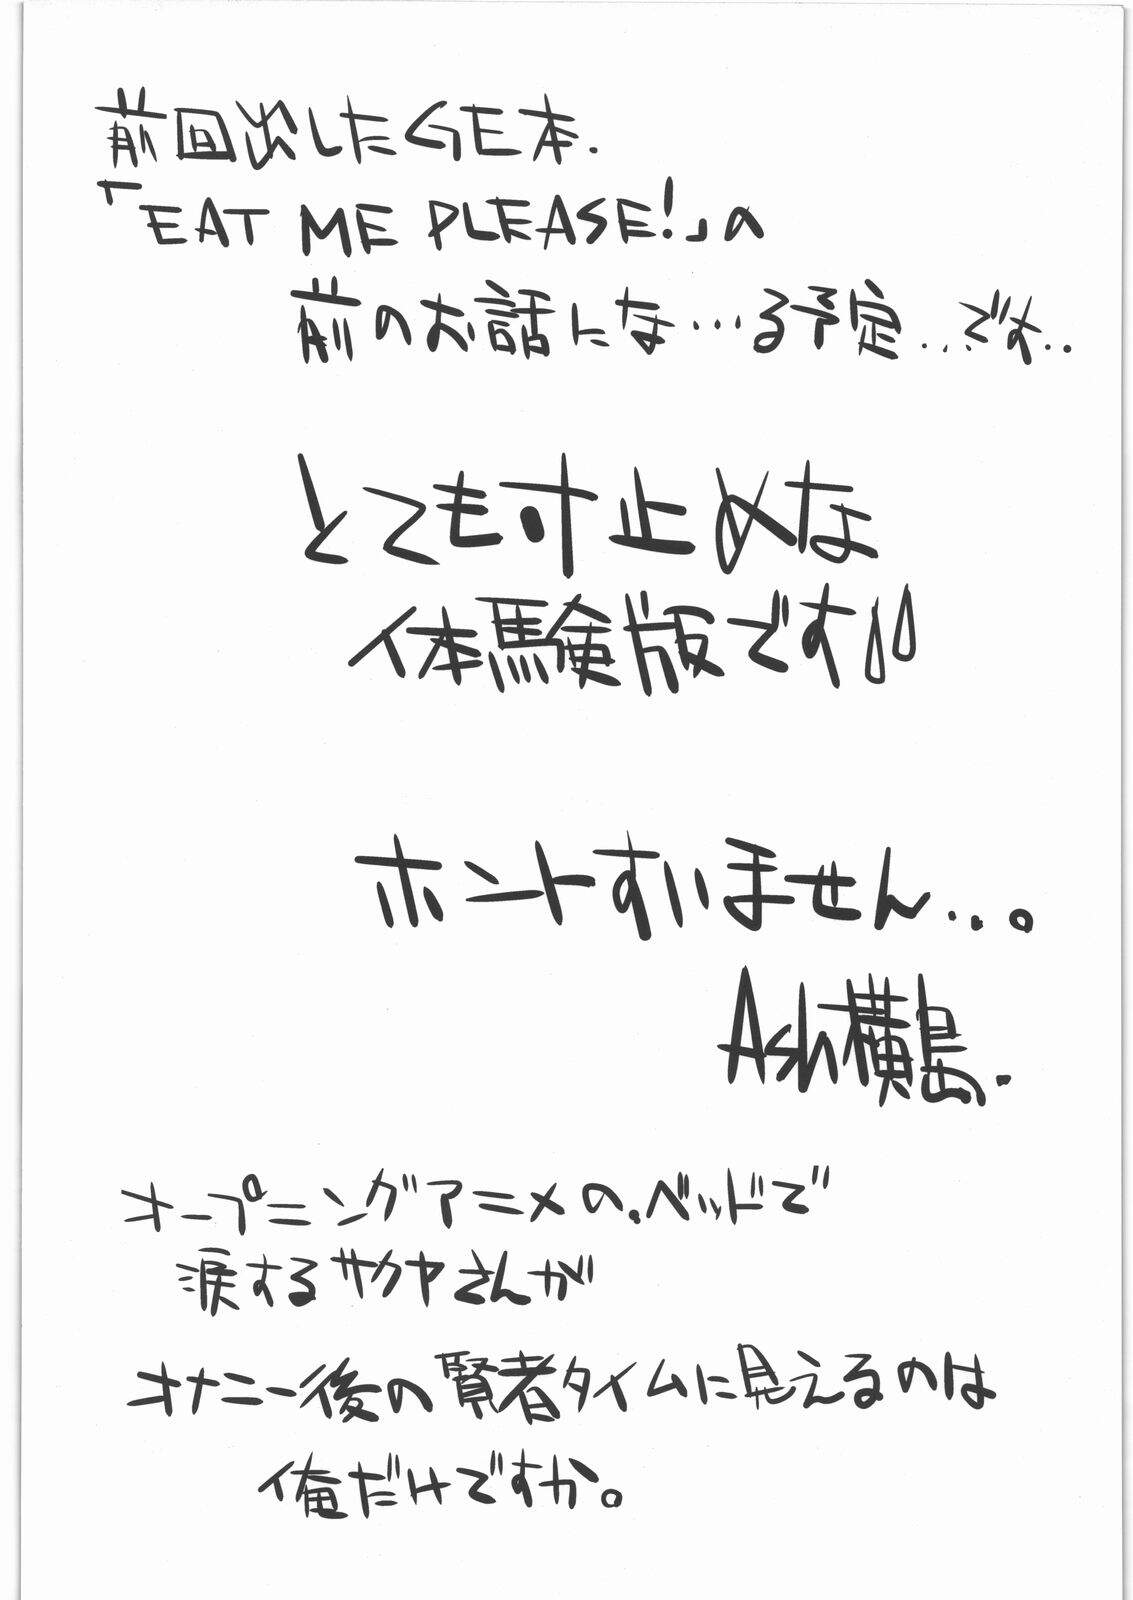 前回出したGE本.
「EAT ME PLEASE!」の
前のお話にな…る予定...です..
とても寸止めな
体験版です!!
ホントすいません...。
Ash横島.
オープニングアニメの.ベッドで
涙するサクヤさんが
オナニー後の賢者タイムに見えるのは
俺だけですか。